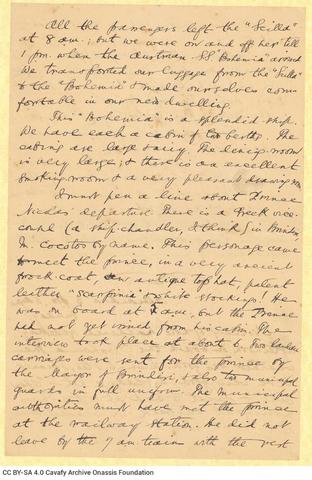 All the passengers left the "Scilla"
at 8 a.m.; but we were on and off her till
1 p.m. when the Austrian SS "Bohemia" arrived
We transported our luggage from the "Scilla"
to the "Bohemia" & made ourselves com-
fortable in our new dwelling.
This "Bohemia" is a splendid ship.
We have each a cabin of two berths. The
cabins are large & airy. The dining-room
is very large; & there is an excellent
smoking-room & a very pleasant drawing
I must pen a line about Prince
Nicolas' departure. There is a Greek vice-
consul (a ship-chandler, I think) in Brindisi,
M. Cocotos by name. This personage came
to meet the prince, in a very ancient
frock coat, antique top hat, patent
leather "scarpinia" & white stockings! He
was on board at 5 a.m., but the Prince
had not yet issued from his cabin. The
interview took place at about 6. Two landau
carriages were sent for the prince by
the Mayor of Brindisi, & also two municipal
guards in full uniform. The municipal
authorities must have met the prince
at the railway station. He did not
leave by the 7 a.m. train with the rest
CC BY-SA 4.0 Cavafy Archive Onassis Foundation